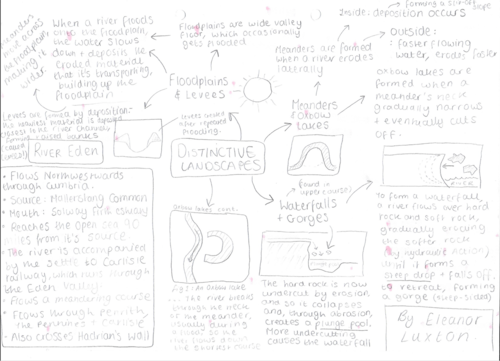 When a river floods
onto the floodplain,
the water slows
down + deposits the
eroded material
that it's transporting,
building up the
floodplain
Floodplains are wide valley
floor, which occasionally
gets flooded
forming a
Inside: deposition occurs
Meanders are formed
when a river erodes
laterally
outside:
: faster flowing
water, erodes faster
Oxbow lakes are
formed when a
meander's neck
gradually narrows
+ eventually cuts
off.
across
the floodplain
making it
wider
Floodplains
& Levees
Levees are formed by deposition
material is
closest to the river channel
forming raised
levees
after repeated
flooding
Meanders
oxbow
lakes
DISTINCTIVE
LANDSCAPES
River Eden
• Flows Northwestwards
through Cumbria.
• Source: Mallerstang Common
• Mouth: Solway Firth estuary
• Reaches the open sea 90
miles from it's source.
• The river is accompanied
by the Settle to Carlisle
railway, which runs through
the Eden Valley.
• Flows a meandering course
• Flows through Penrith,
the Pennines + Carlisle
Also crosses Hadrian's Wall
oxbow lakes cont.
the river
through the neck of
the meander,
usually during
a flood so the
river flows down
the
found in
upper course
Waterfalls
+ Gorges
The hard rock is now
undercut by erosion
and so it collapses
and, through abrasion,
creates a plunge pool.
More undercutting
causes the waterfall
To form a waterfall
a river flows over hard
rock and soft rock,
gradually eroding
the softer rock
(by hydraulic action)
until it forms a
steep drop + falls off
to retreat, forming
a gorge (steep-sided)
By: Eleanor
Luxton.